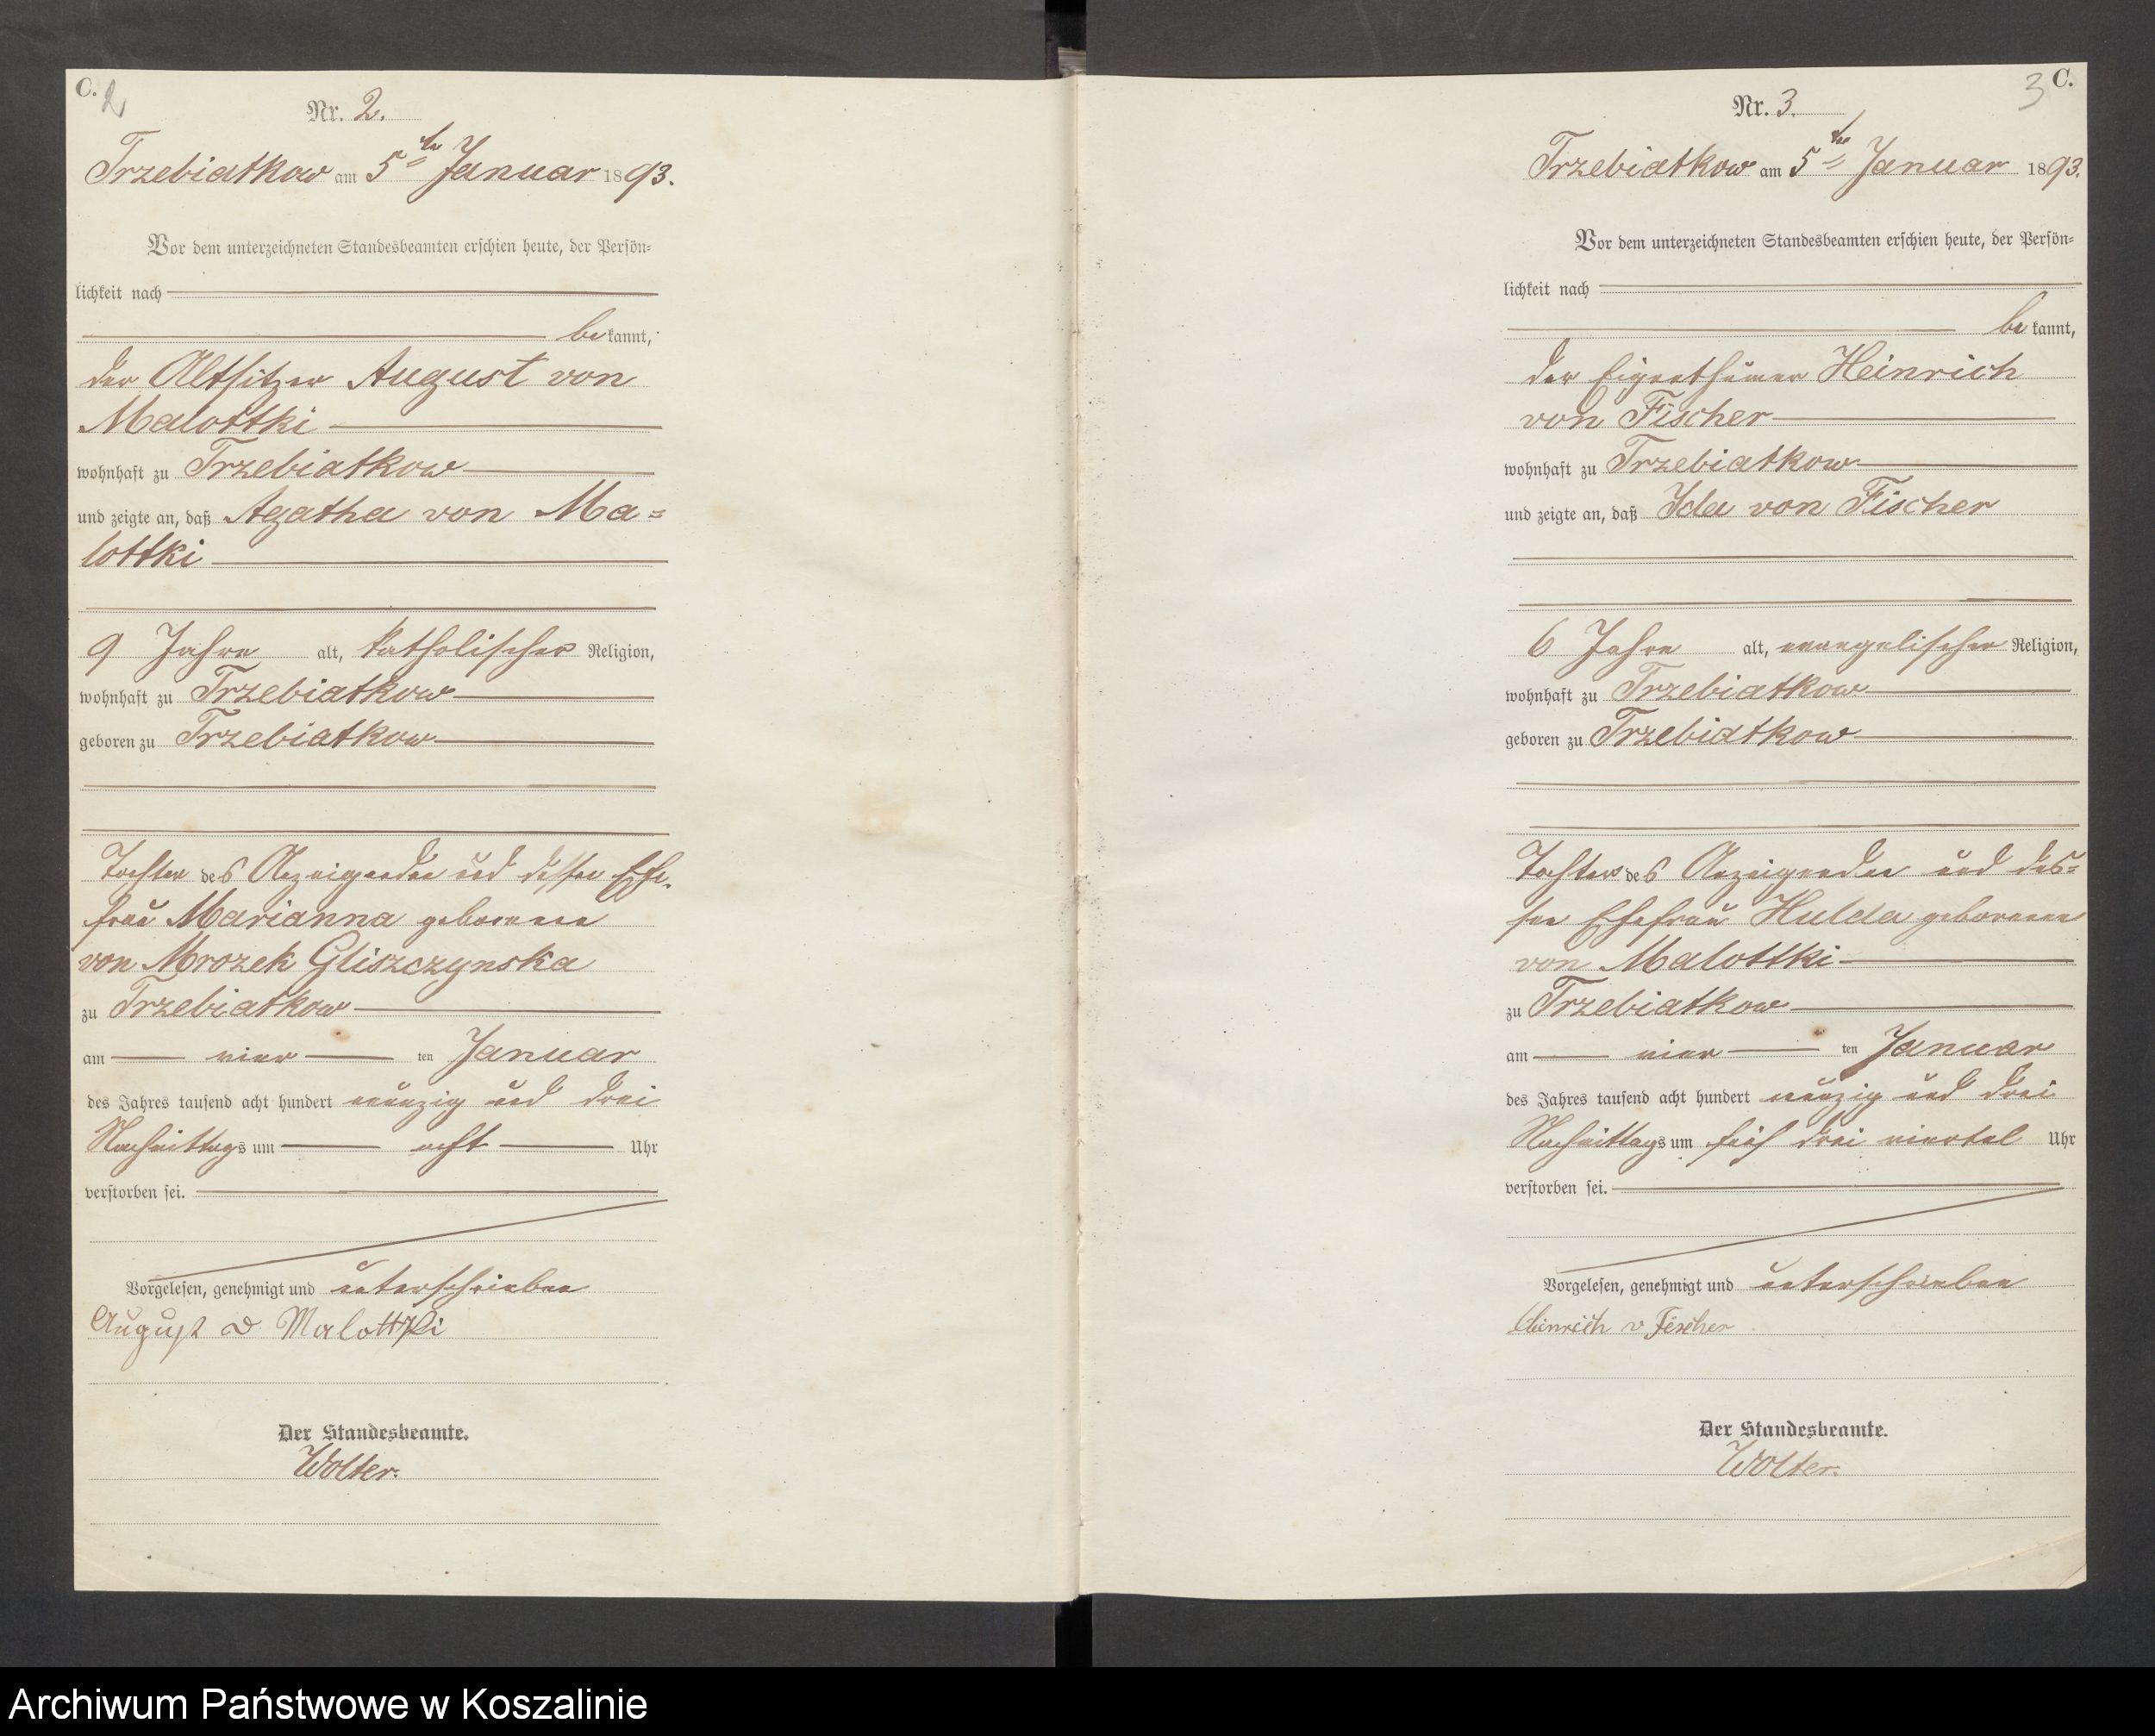 C. 2
Nr. 2.
Trzebiatkow am 5ten Januar 1893.
Vor dem unterzeichneten Standesbeamten erschien heute, der Persön=
lichkeit nach
bekannt,
der Altsitzer August von
Malottki
wohnhaft zu Trzebiatkow
und zeigte an, daß Agatha von Ma=
lottki
9 Jahre alt, katholischer Religion,
wohnhaft zu Trzebiatkow
geboren zu Trzebiatkow
Tochter des Anzeigenden und dessen Ehe-
frau Marianna geborenen
von Mrozek Gliszczynska
zu Trzebiatkow
am vier ten Januar
des Jahres tausend acht hundert neunzig und drei
Nachmittags um acht Uhr
verstorben sei.
Vorgelesen, genehmigt und unterschrieben
August v Malottki
Der Standesbeamte.
Wolter.
3 C.
Nr. 3.
Trzebiatkow am 5ten Januar 1893.
Vor dem unterzeichneten Standesbeamten erschien heute, der Persön=
lichkeit nach
bekannt,
der Eigenthümer Heinrich
von Fischer
wohnhaft zu Trzebiatkow
und zeigte an, daß Ida von Fischer
6 Jahre alt, evangelischer Religion,
wohnhaft zu Trzebiatkow
geboren zu Trzebiatkow
Tochter des Anzeigenden und des=
sen Ehefrau Hulda geborenen
von Malottki
zu Trzebiatkow
am vier ten Januar
des Jahres tausend acht hundert neunzig und drei
Nachmittags um drei viertel Uhr
verstorben sei.
Vorgelesen, genehmigt und unterschrieben
Heinrich v Fischer
Der Standesbeamte.
Wolter.
Archiwum Państwowe w Koszalinie